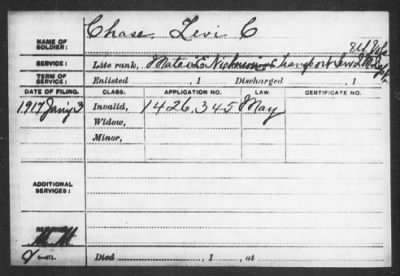 NAME OF SOLDIER: Chase Levi C
SERVICE: Late rank, Mate
TERM OF SERVICE: Enlisted , 1 Discharged , 1
DATE OF FILING. CLASS. APPLICATION NO. LAW CERTIFICATE NO.
1917 Jan'y 3 Invalid, 1426,345 May
Widow,
Minor,
ADDITIONAL SERVICES:
Died , 1 , at